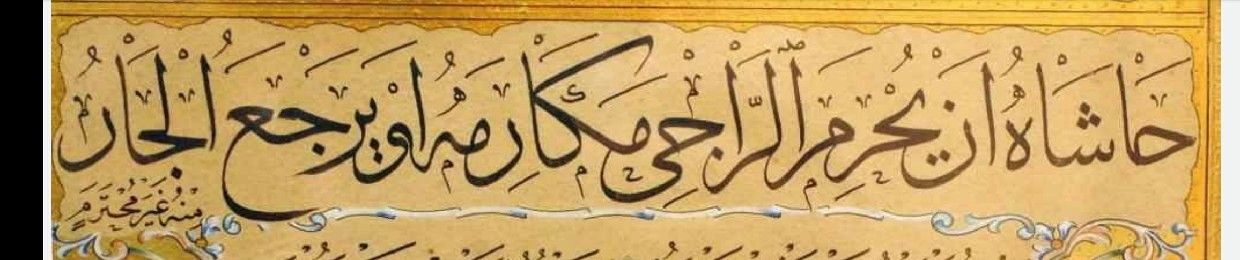 حَاشَاهُ اَنْ يُحْرِمِ الرَّاجِي مَكَارِمَهُ اَوْ يَرْجِعَ الْجَارُ
مِنْهُ غَيْرَ مُحْتَرَمٍ